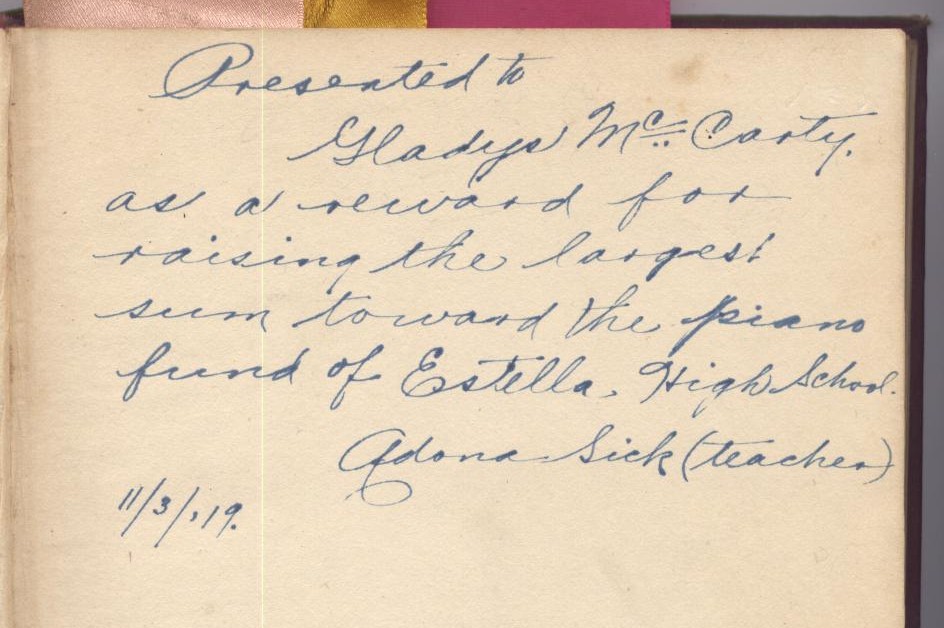 Presented to
Gladys McCarty.
as a reward for
raising the largest
sum toward the piano
fund of Estella, High School.
Adona Sick (teacher)
11/3/,19.